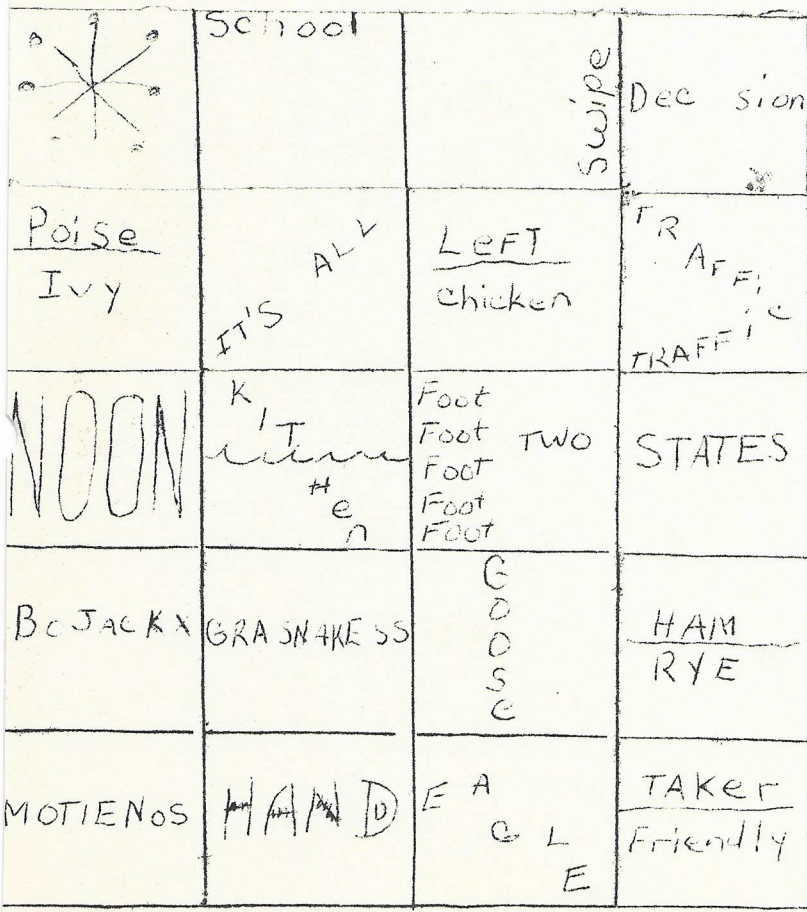 School
Swipe
Dec sion
Poise
Ivy
IT'S ALL
LeFT
chicken
TRAFFic
TRAFFic
NOON
KIT
Hen
Foot
Foot TWO
Foot
Foot
FOOT
STATES
BoJACKX
GRASNAKESS
GOOSe
HAM
RYE
MOTIENoS
HAND
EAGLE
TAKer
Friendly